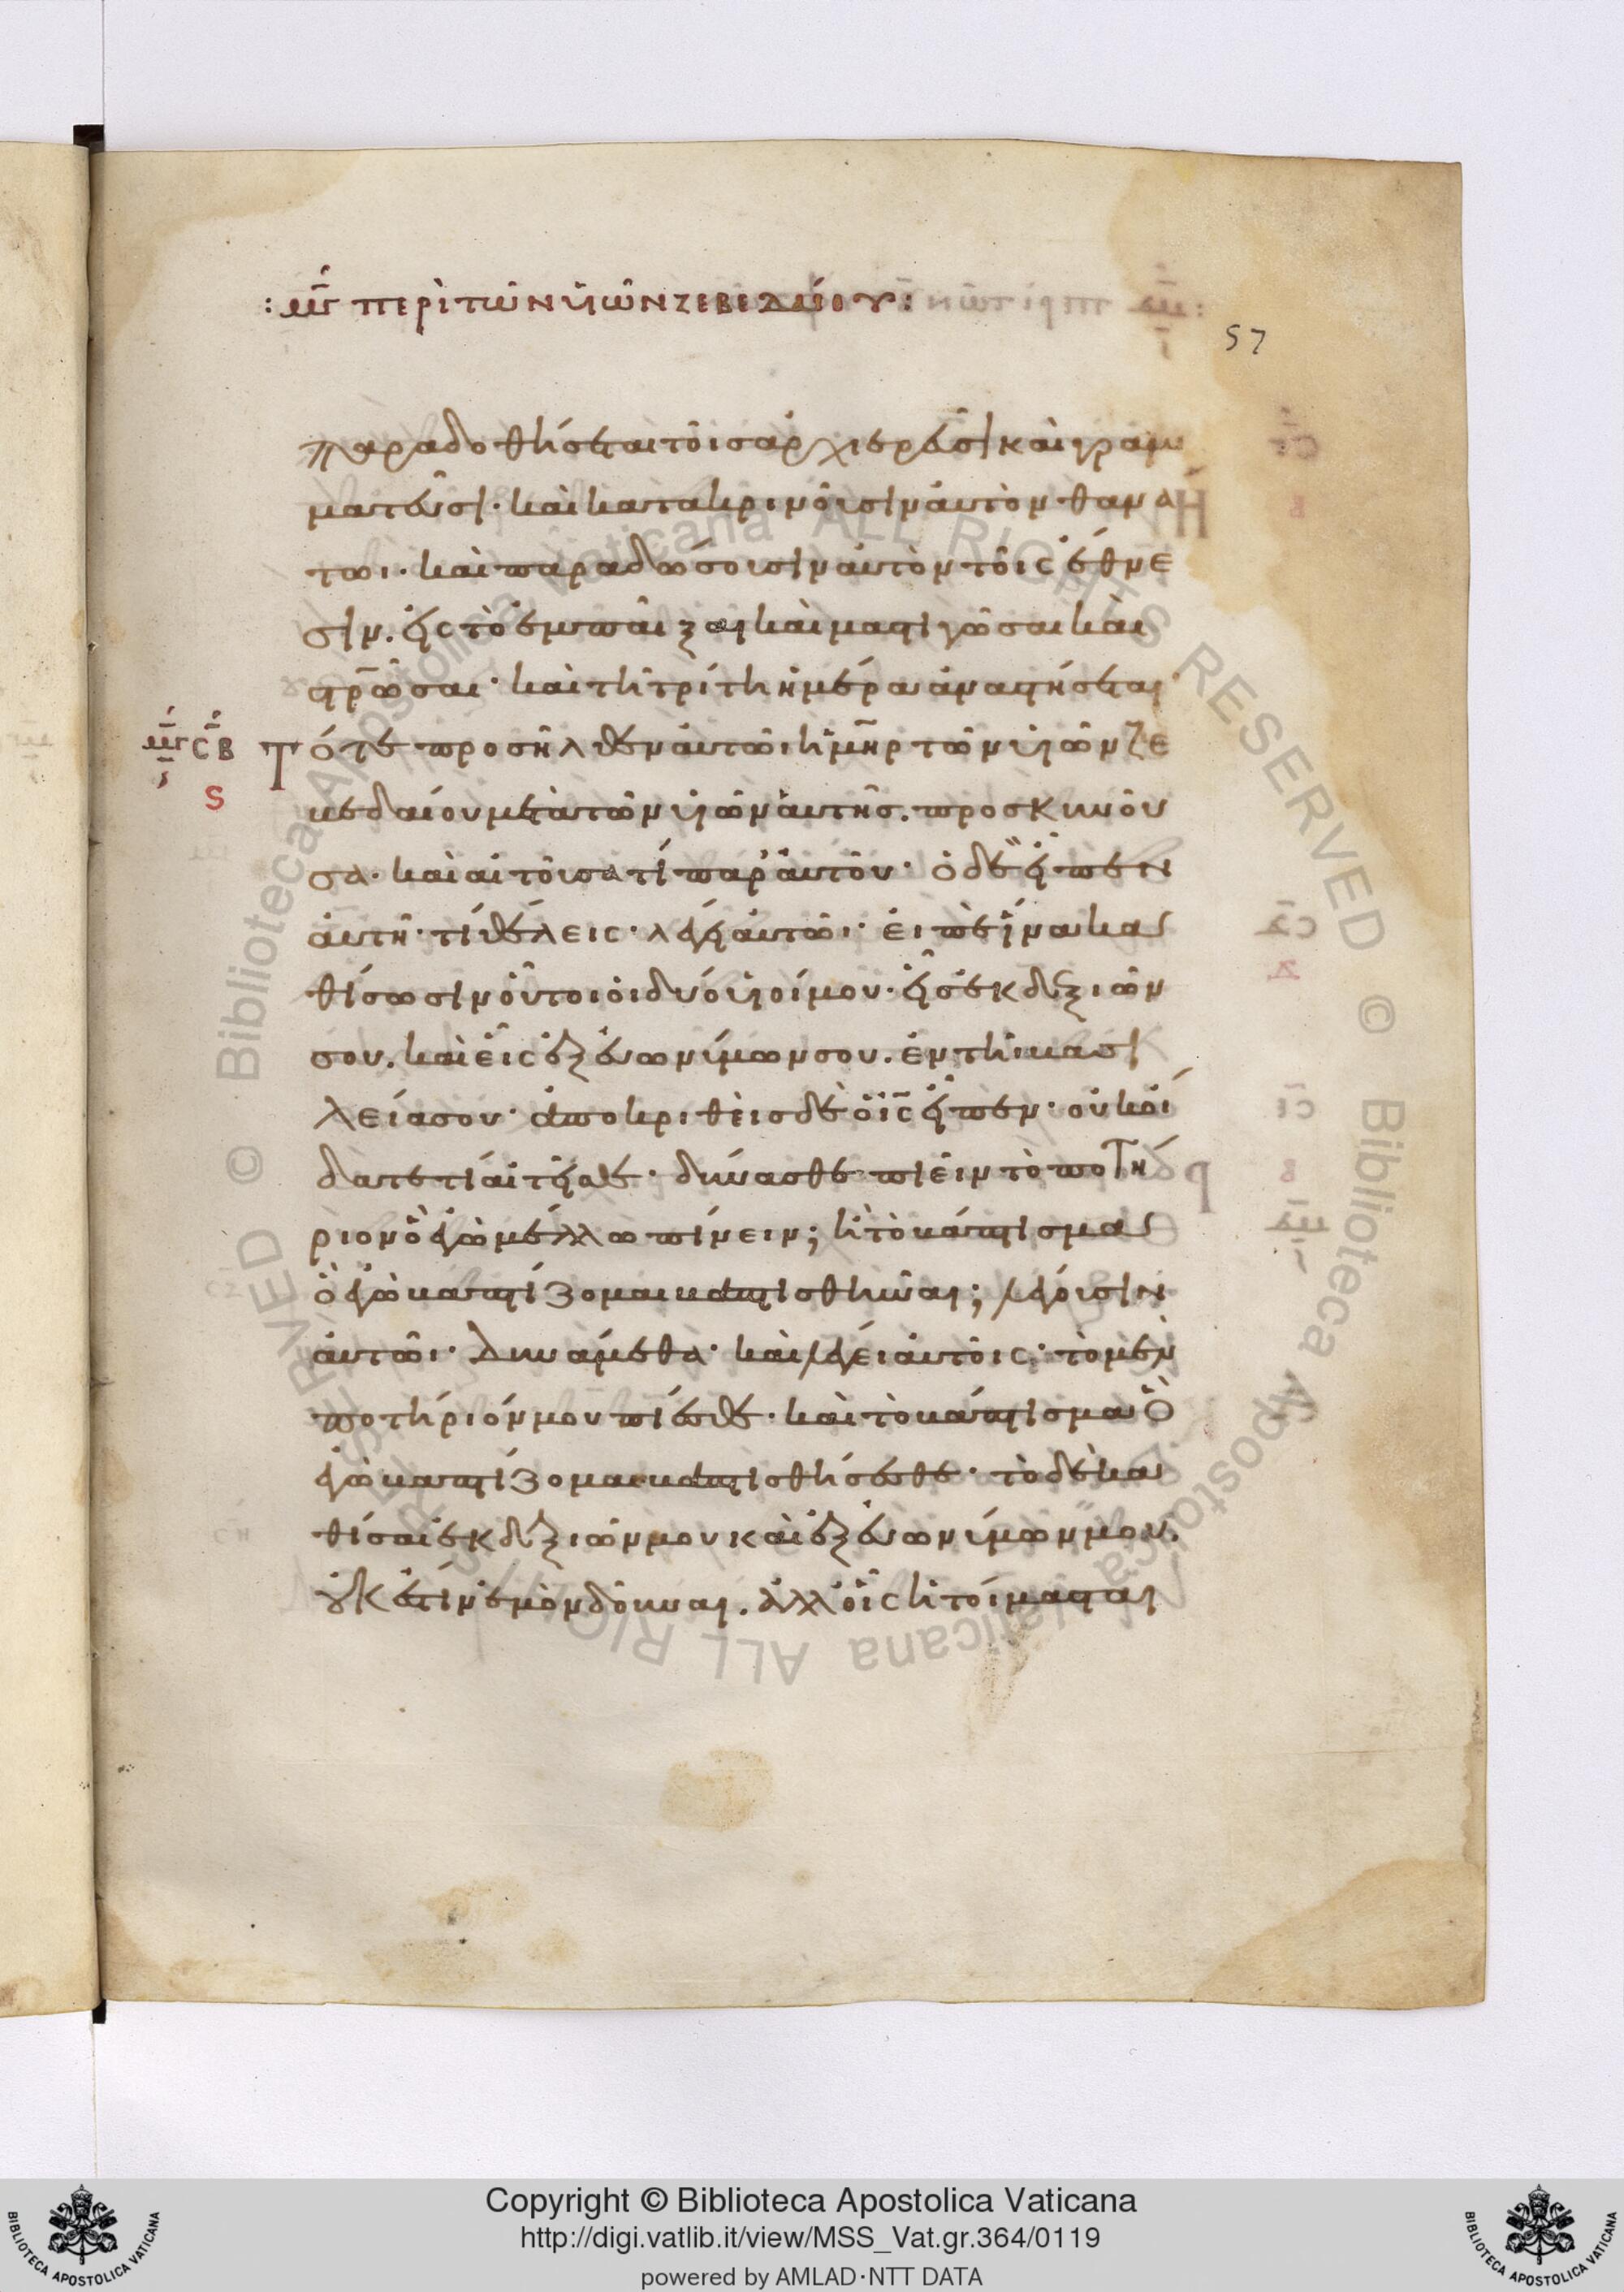 : μγ περὶ τῶν υἱῶν ζεβεδαίου :
57
παραδοθήσεται τοῖς ἀρχιερεῦσι καὶ γραμ
ματεῦσι· καὶ κατακρινοῦσιν αὐτὸν θανά
τωι· καὶ παραδώσουσιν αὐτὸν τοῖς ἔθνε
σιν. εἰς τὸ ἐμπαῖξαι καὶ μαστιγῶσαι καὶ
στρ̅ῶσαι· καὶ τῆ τρίτη ἡμέρα ἀναστήσεται·
μγ σβ Τότε προσῆλθεν αὐτῶι ἡ μη̅ρ τῶν υἱῶν ζε
ς
βεδαίου μετὰ τῶν υἱῶν αὐτῆς. προσκυνοῦ
σα· καὶ αἰτοῦσα τὶ παρ' αὐτοῦ· ὁ δὲ εἶπεν
αὐτῆ· τί θέλεις· λέγει αὐτῶι· εἰπὲ ἵνα κα
θίσωσιν οὗτοι οἱ δύο υἱοί μου· εἷς ἐκ δεξιῶν
σου. καὶ εἷς ἐξ εὐωνύμων σου. ἐν τῆ βασι
λεία σου· ἀποκριθεὶς δὲ ὁ ι̅ς̅ εἶπεν· οὐκ οἴ
δατε τί αἰτεῖσθε· δύνασθε πιεῖν τὸ ποτή
ριον ὃ ἐγὼ μέλλω πίνειν; ἢ τὸ βάπτισμα
ὃ ἐγὼ βαπτίζομαι βαπτισθῆναι; λέγουσιν
αὐτῶι· Δυνάμεθα· καὶ λέγει αὐτοῖς· τὸ μὲν
ποτήριόν μου πίεσθε· καὶ τὸ βάπτισμα ὃ
ἐγὼ βαπτίζομαι βαπτισθήσεσθε· τὸ δὲ κα
θίσαι ἐκ δεξιῶν μου καὶ ἐξ εὐωνύμων μου.
οὐκ ἔστιν ἐμὸν δοῦναι. ἀλλ' οἷς ἡτοίμασται
Copyright © Biblioteca Apostolica Vaticana
http://digi.vatlib.it/view/MSS_Vat.gr.364/0119
powered by AMLAD·NTT DATA
BIBLIOTECA APOSTOLICA VATICANA
BIBLIOTECA APOSTOLICA VATICANA